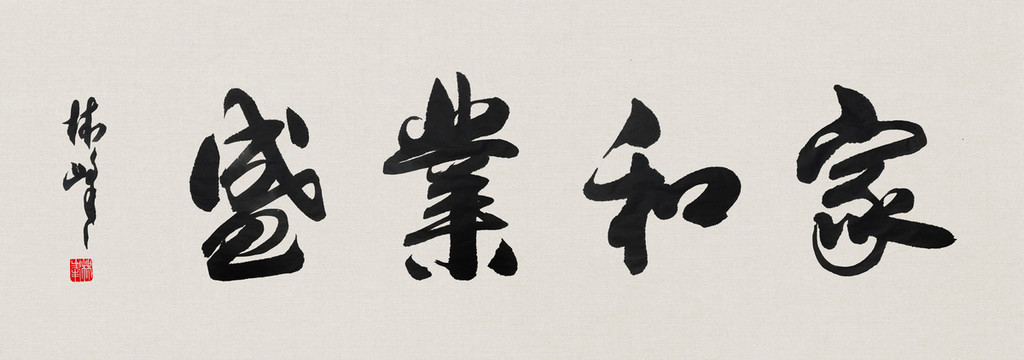 家和業盛
林峰